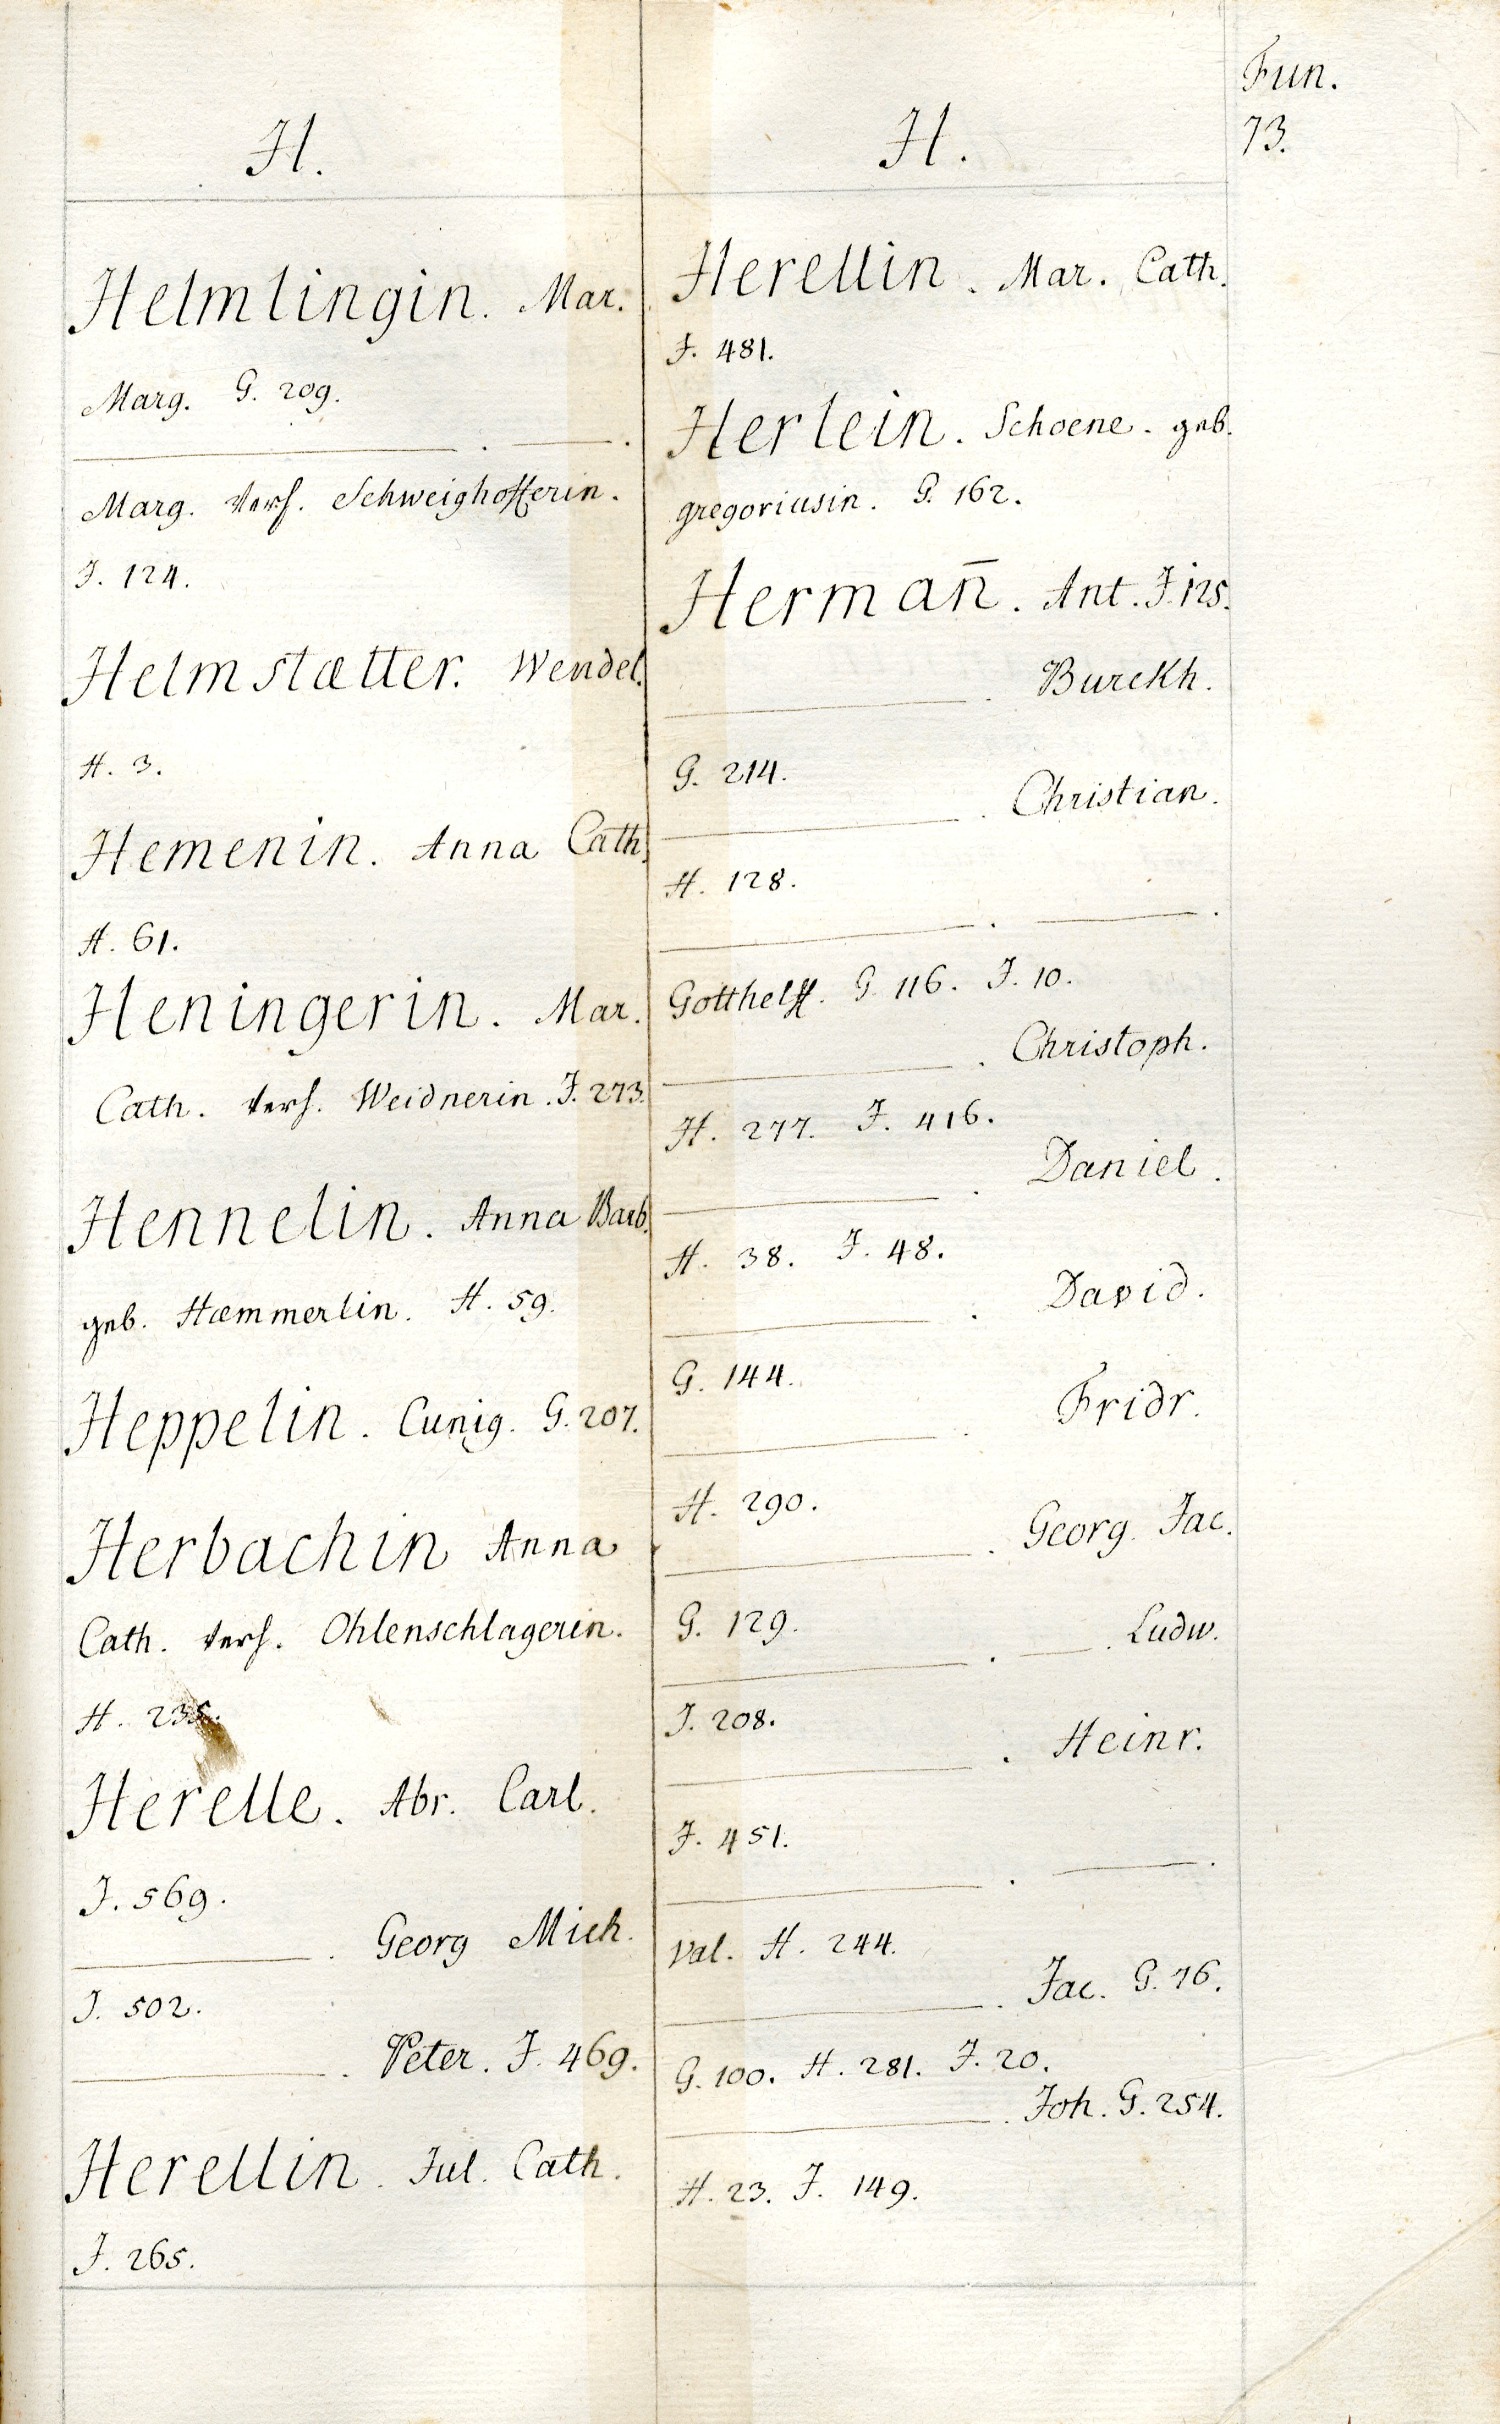 Fun.
73.
H.
Helmlingin. Mar.
Marg. G. 209.
———. ———.
Marg. verh. Schweighofferin.
J. 124.
Helmstætter. Wendel.
H. 3.
Hemenin. Anna Cath.
H. 61.
Heningerin. Mar.
Cath. verh. Weidnerin. J. 273.
Hennelin. Anna Barb.
geb. Hæmmerlin. H. 59.
Heppelin. Cunig. G. 207.
Herbachin Anna
Cath. verh. Ohlenschlagerin.
H. 235.
Herelle. Abr. Carl.
J. 569.
———. Georg Mich.
J. 502.
———. Peter. J. 469.
Herellin. Jul. Cath.
J. 265.
H.
Herellin. Mar. Cath.
J. 481.
Herlein. Schoene. geb.
gregoriusin. G. 162.
Herman̄. Ant. J. 125.
———. Burckh.
G. 214.
———. Christian.
H. 128.
———. ———.
Gotthelff. G. 116. J. 10.
———. Christoph.
H. 277. J. 416.
———. Daniel.
H. 38. J. 48.
———. David.
G. 144.
———. Fridr.
H. 290.
———. Georg. Jac.
G. 129.
———. ———. Ludw.
J. 208.
———. Heinr.
J. 451.
———. ———.
Val. H. 244.
———. Jac. G. 76.
G. 100. H. 281. J. 20.
———. Joh. G. 254.
H. 23. J. 149.